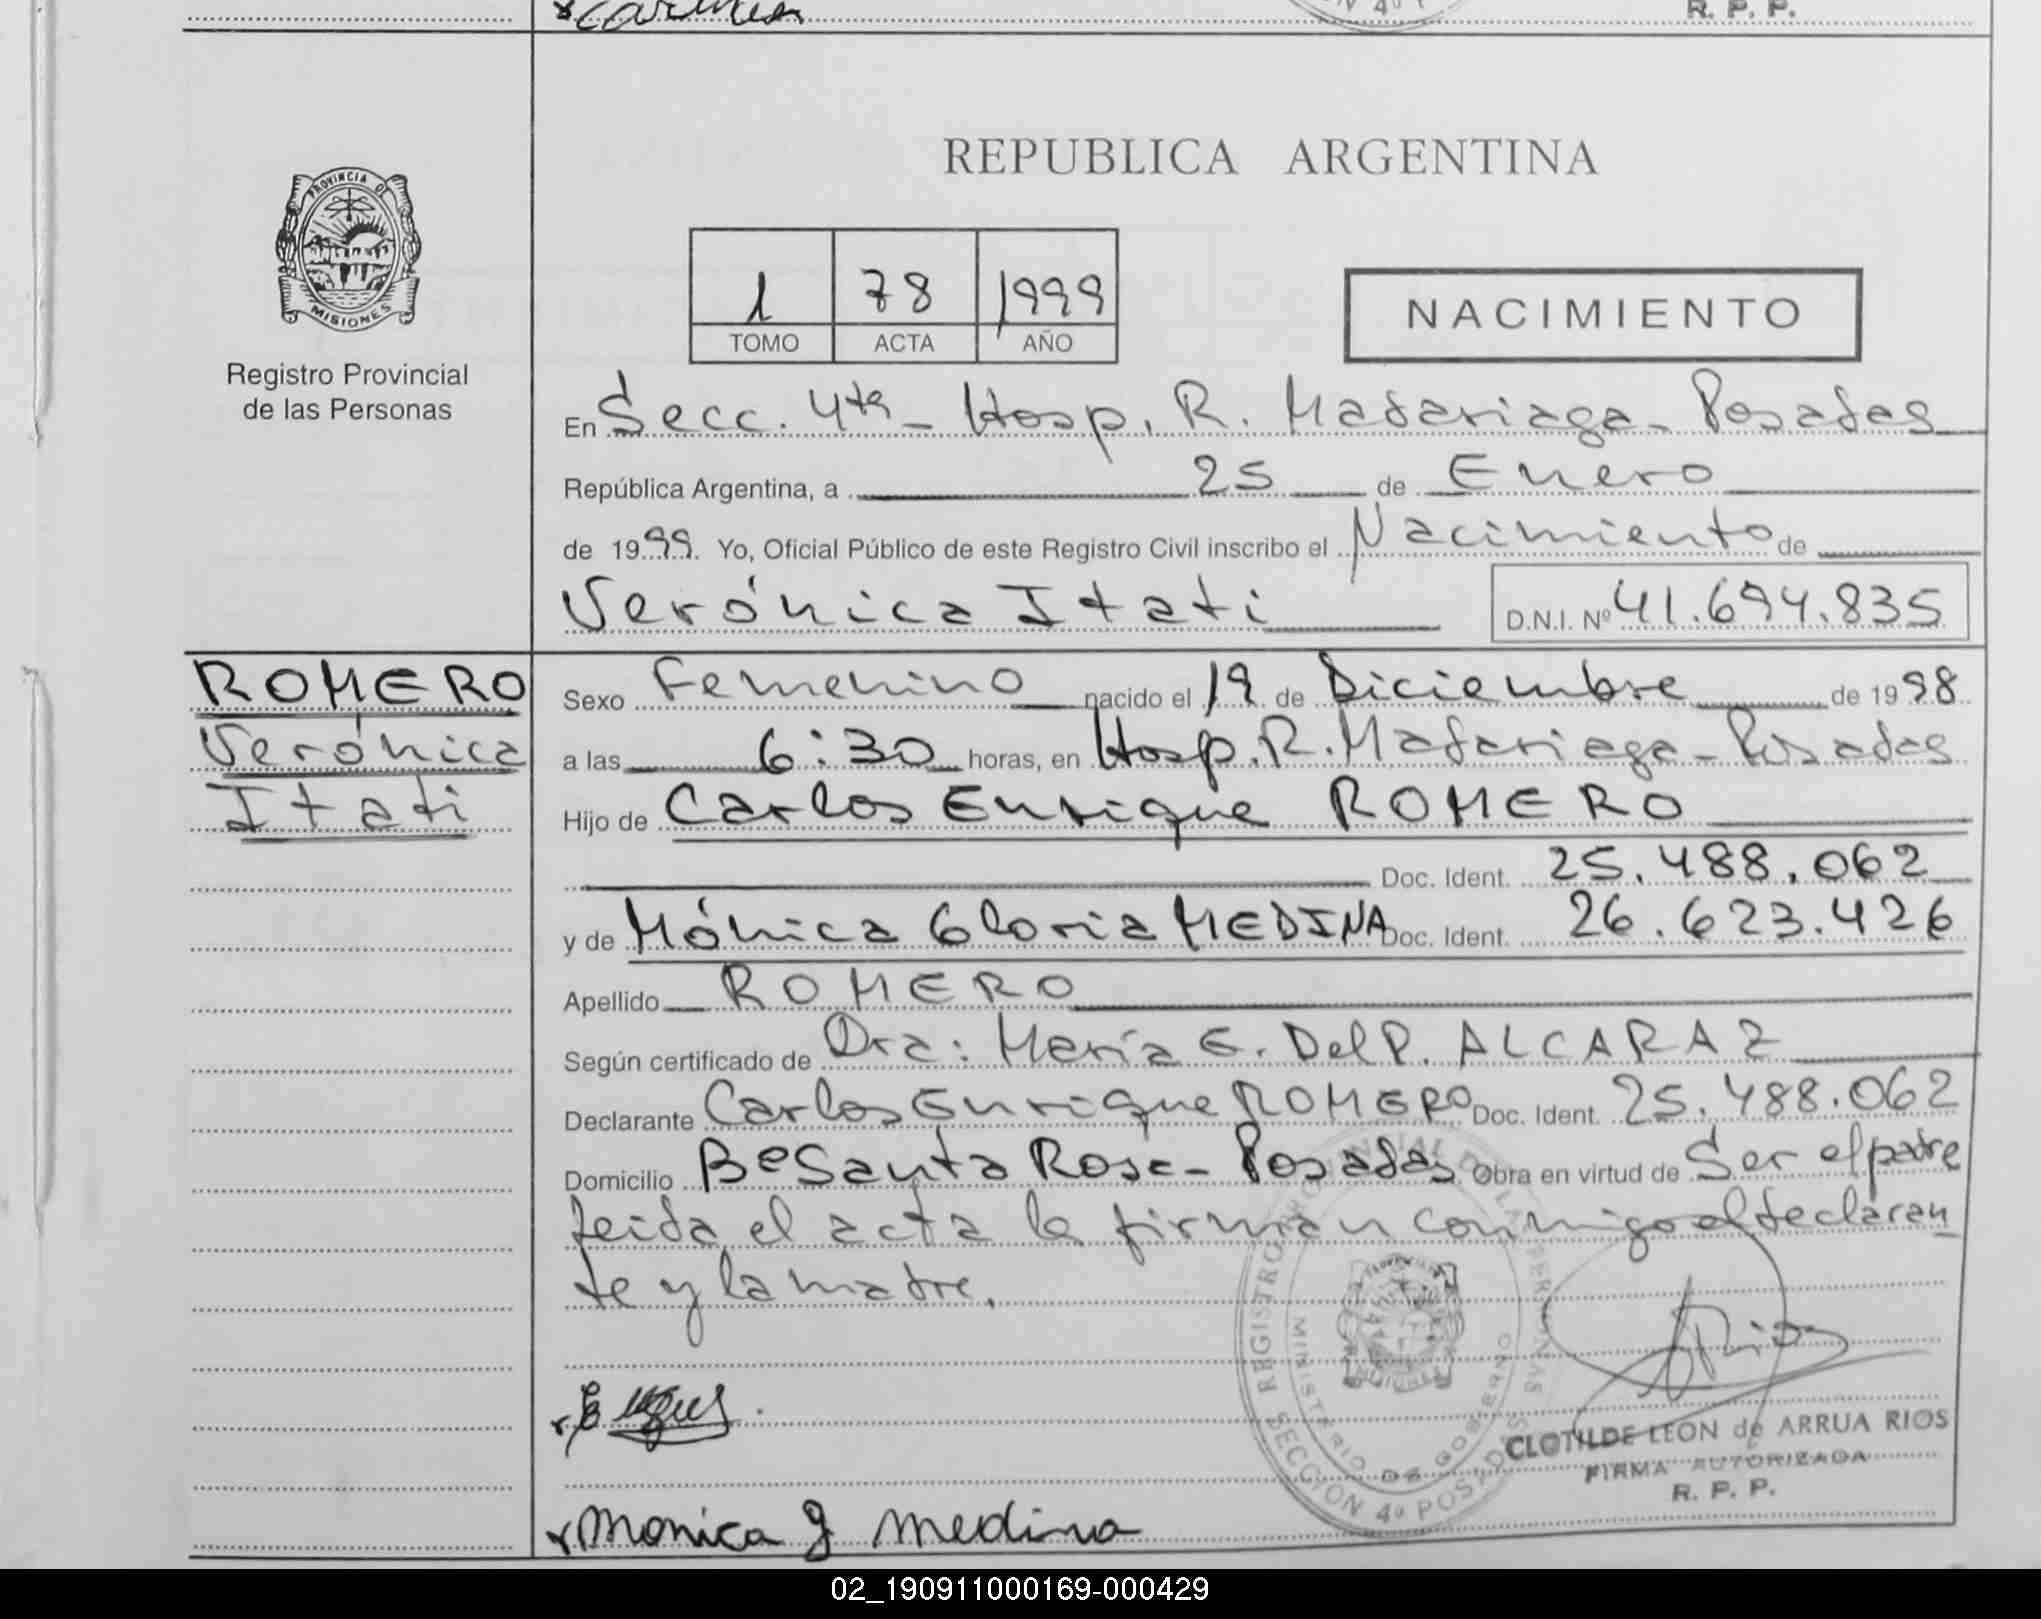 Carmen
R. P. P.
REPUBLICA ARGENTINA
PROVINCIA DE
MISIONES
Registro Provincial
de las Personas
1 78 1999
TOMO ACTA AÑO
NACIMIENTO
En Secc. 4ta - Hosp. R. Madariaga - Posadas
República Argentina, a 25 de Enero
de 1999. Yo, Oficial Público de este Registro Civil inscribo el Nacimiento de
Verónica Itati D.N.I. Nº 41.694.835
ROMERO
Verónica
Itati
Sexo Femenino nacido el 19 de Diciembre de 1998
a las 6:30 horas, en Hosp. R. Madariaga - Posadas
Hijo de Carlos Enrique ROMERO
Doc. Ident. 25.488.062
y de Mónica Gloria MEDINA Doc. Ident. 26.623.426
Apellido ROMERO
Según certificado de Dra: María E. Del P. ALCARAZ
Declarante Carlos Enrique ROMERO Doc. Ident. 25.488.062
Domicilio Bº Santa Rosa - Posadas Obra en virtud de Ser el padre
leida el acta la firman conmigo el declaran
te y la madre.
REGISTRO PROVINCIAL DE LAS PERSONAS
MINISTERIO DE GOBIERNO
SECCION 4º POSADAS
CLOTILDE LEON de ARRUA RIOS
FIRMA AUTORIZADA
R. P. P.
Monica g medina
02_190911000169-000429